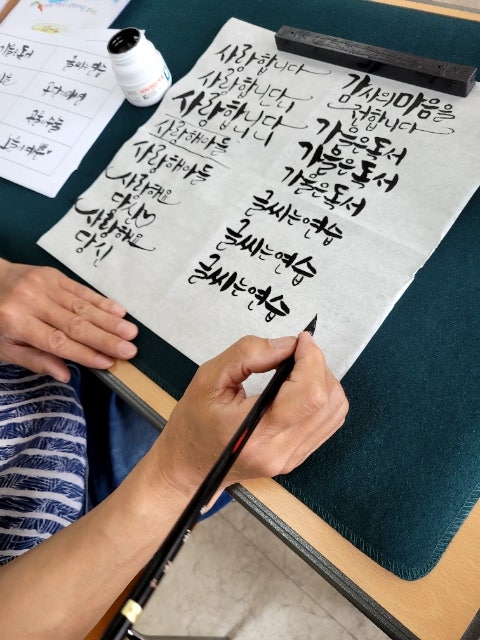 사랑합니다
사랑합니다
사랑합니다
사랑해아들
사랑해아들
사랑해요
당신♡
사랑해요
당신
감사의마음을
전합니다
가을은독서
가을은독서
가을은독서
글씨는연습
글씨는연습
글씨는연습